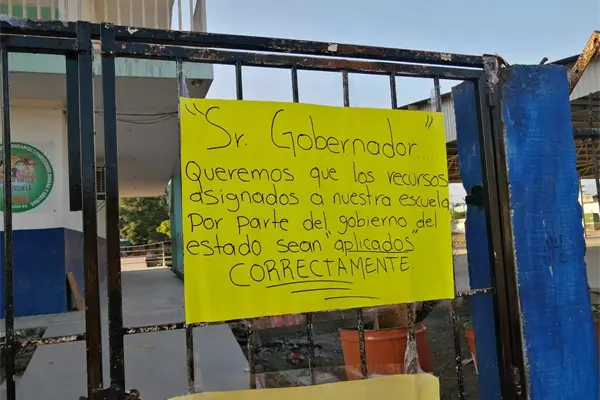 "Sr. Gobernador"...
Queremos que los recursos
asignados a nuestra escuela
Por Parte del gobierno del
estado sean "aplicados"
CORRECTAMENTE.